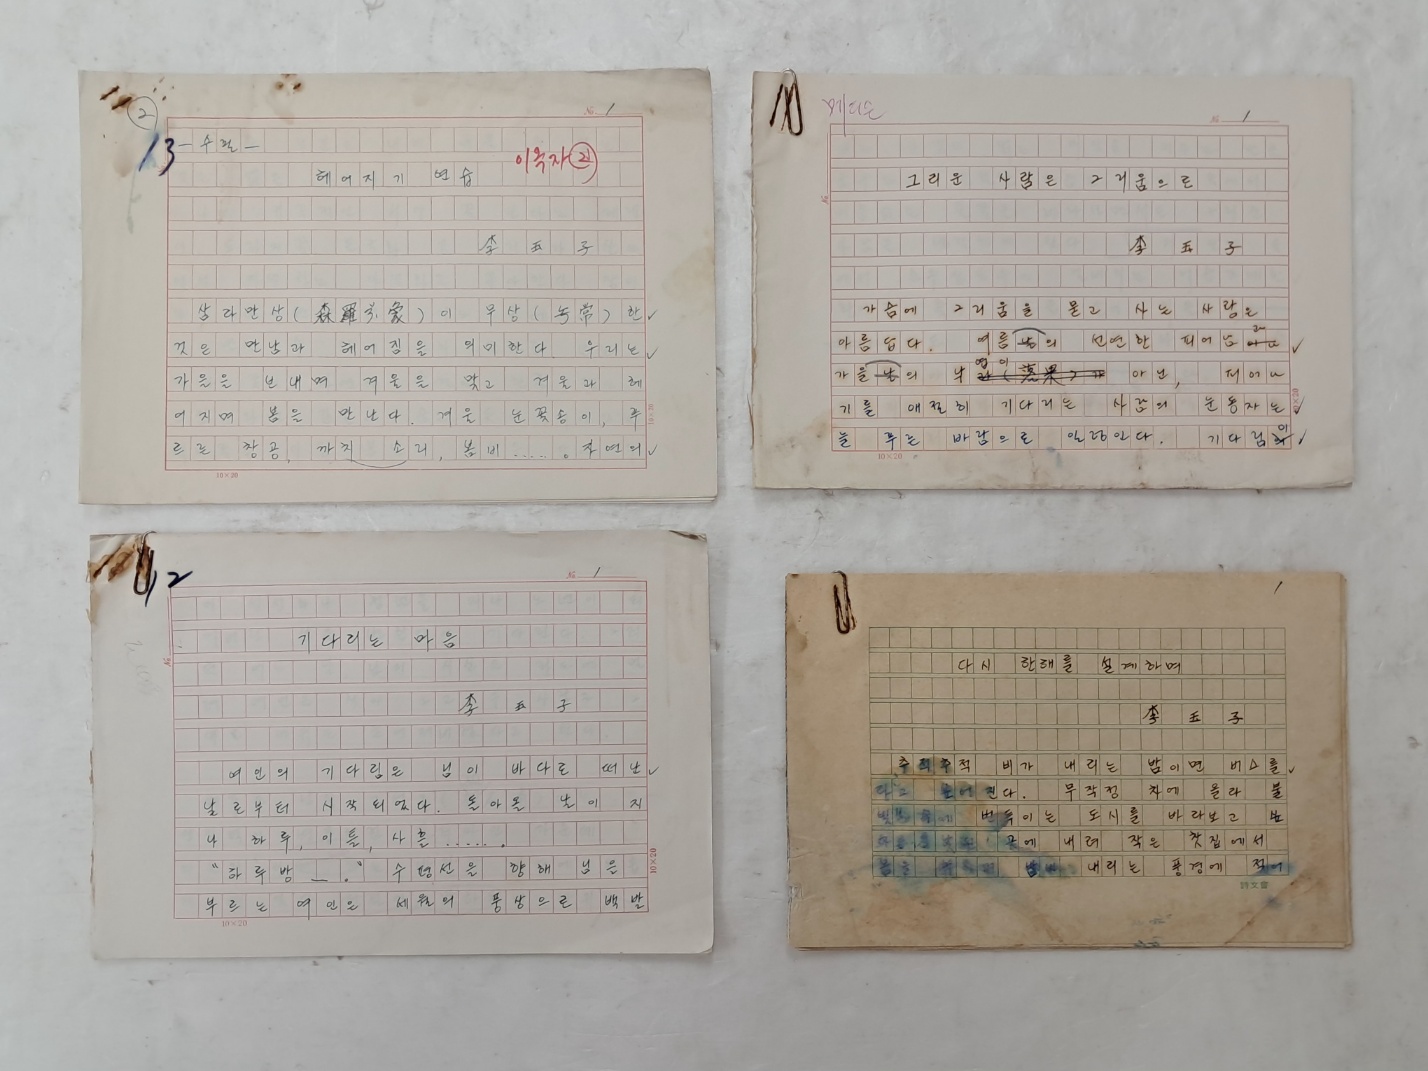 2
№ 1
13
— 수필 —
이옥자 21
헤어지기 연습
李玉子
삼라만상(森羅万象)이 무상(無常)한
것은 만남과 헤어짐을 의미한다. 우리는
가을을 보내며 겨울을 맞고 겨울과 헤
어지며 봄을 만난다. 겨울 눈꽃송이, 푸
르른 창공, 까치 소리, 봄비……。 자연의
10×20
10×20
№ 1
그리운 사람은 그리움으로
李玉子
가슴에 그리움을 묻고 사는 사람은
아름답다. 여름날의 선연한 피어남
가을날의 낙엽이 (落果)가 아닌,
기를 애절히 기다리는 사람의 눈동자는
늘 푸른 바람으로 일렁인다. 기다림이
10×20
10×20
12
№ 1
기다리는 마음
李玉子
여인의 기다림은 님이 바다로 떠난
날로부터 시작되었다. 돌아올 날이 지
나 하루, 이틀, 사흘…….
“하루방 —.” 수평선을 향해 님을
부르는 여인은 세월의 풍상으로 백발
10×20
10×20
1
다시 한해를 설계하며
李玉子
추적추적 비가 내리는 밤이면 버스를
타고 싶어진다. 무작정 차에 올라 불
빛 번득이는 도시를 바라보고
끝에 내려 작은 찻집에서
내리는 풍경에 젖어
詩文會